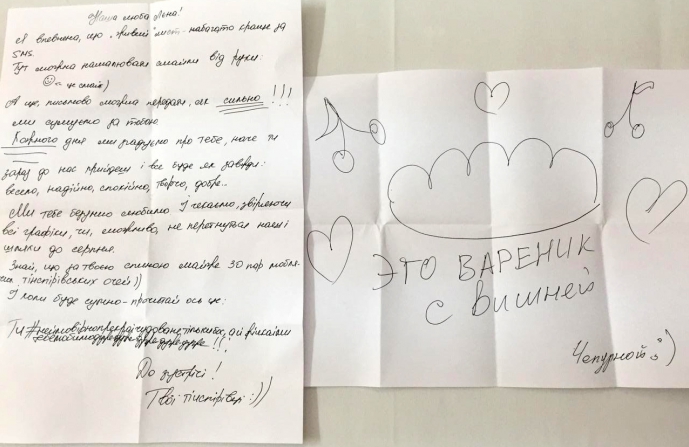 Наша люба Яно!
Я впевнена, що "живий" лист набагато краще за
SMS.
Тут можна намалювати смайли від руки:
☺ - це смайл)
А ще, письмово можна передати, як сильно!!!
ми сумуємо за тобою.
Кожного дня ми згадуємо про тебе, наче ти
зараз до нас прийдеш і все буде як завжди:
весело, надійно, спокійно, творчо, добре...
Ми тебе безумно любимо і чекаємо, звіряючи
всі графіки, чи, можливо, не перетнуться наші
шляхи до серпня.
Знай, що за твоєю спиною майже 30 пар
тінспірівських очей))
І коли буде сумно - прочитай ось це:
Ти
До зустрічі!
Твої тінспірівці :))
ЭТО ВАРЕНИК
С ВИШНЕЙ
Чепурной :)